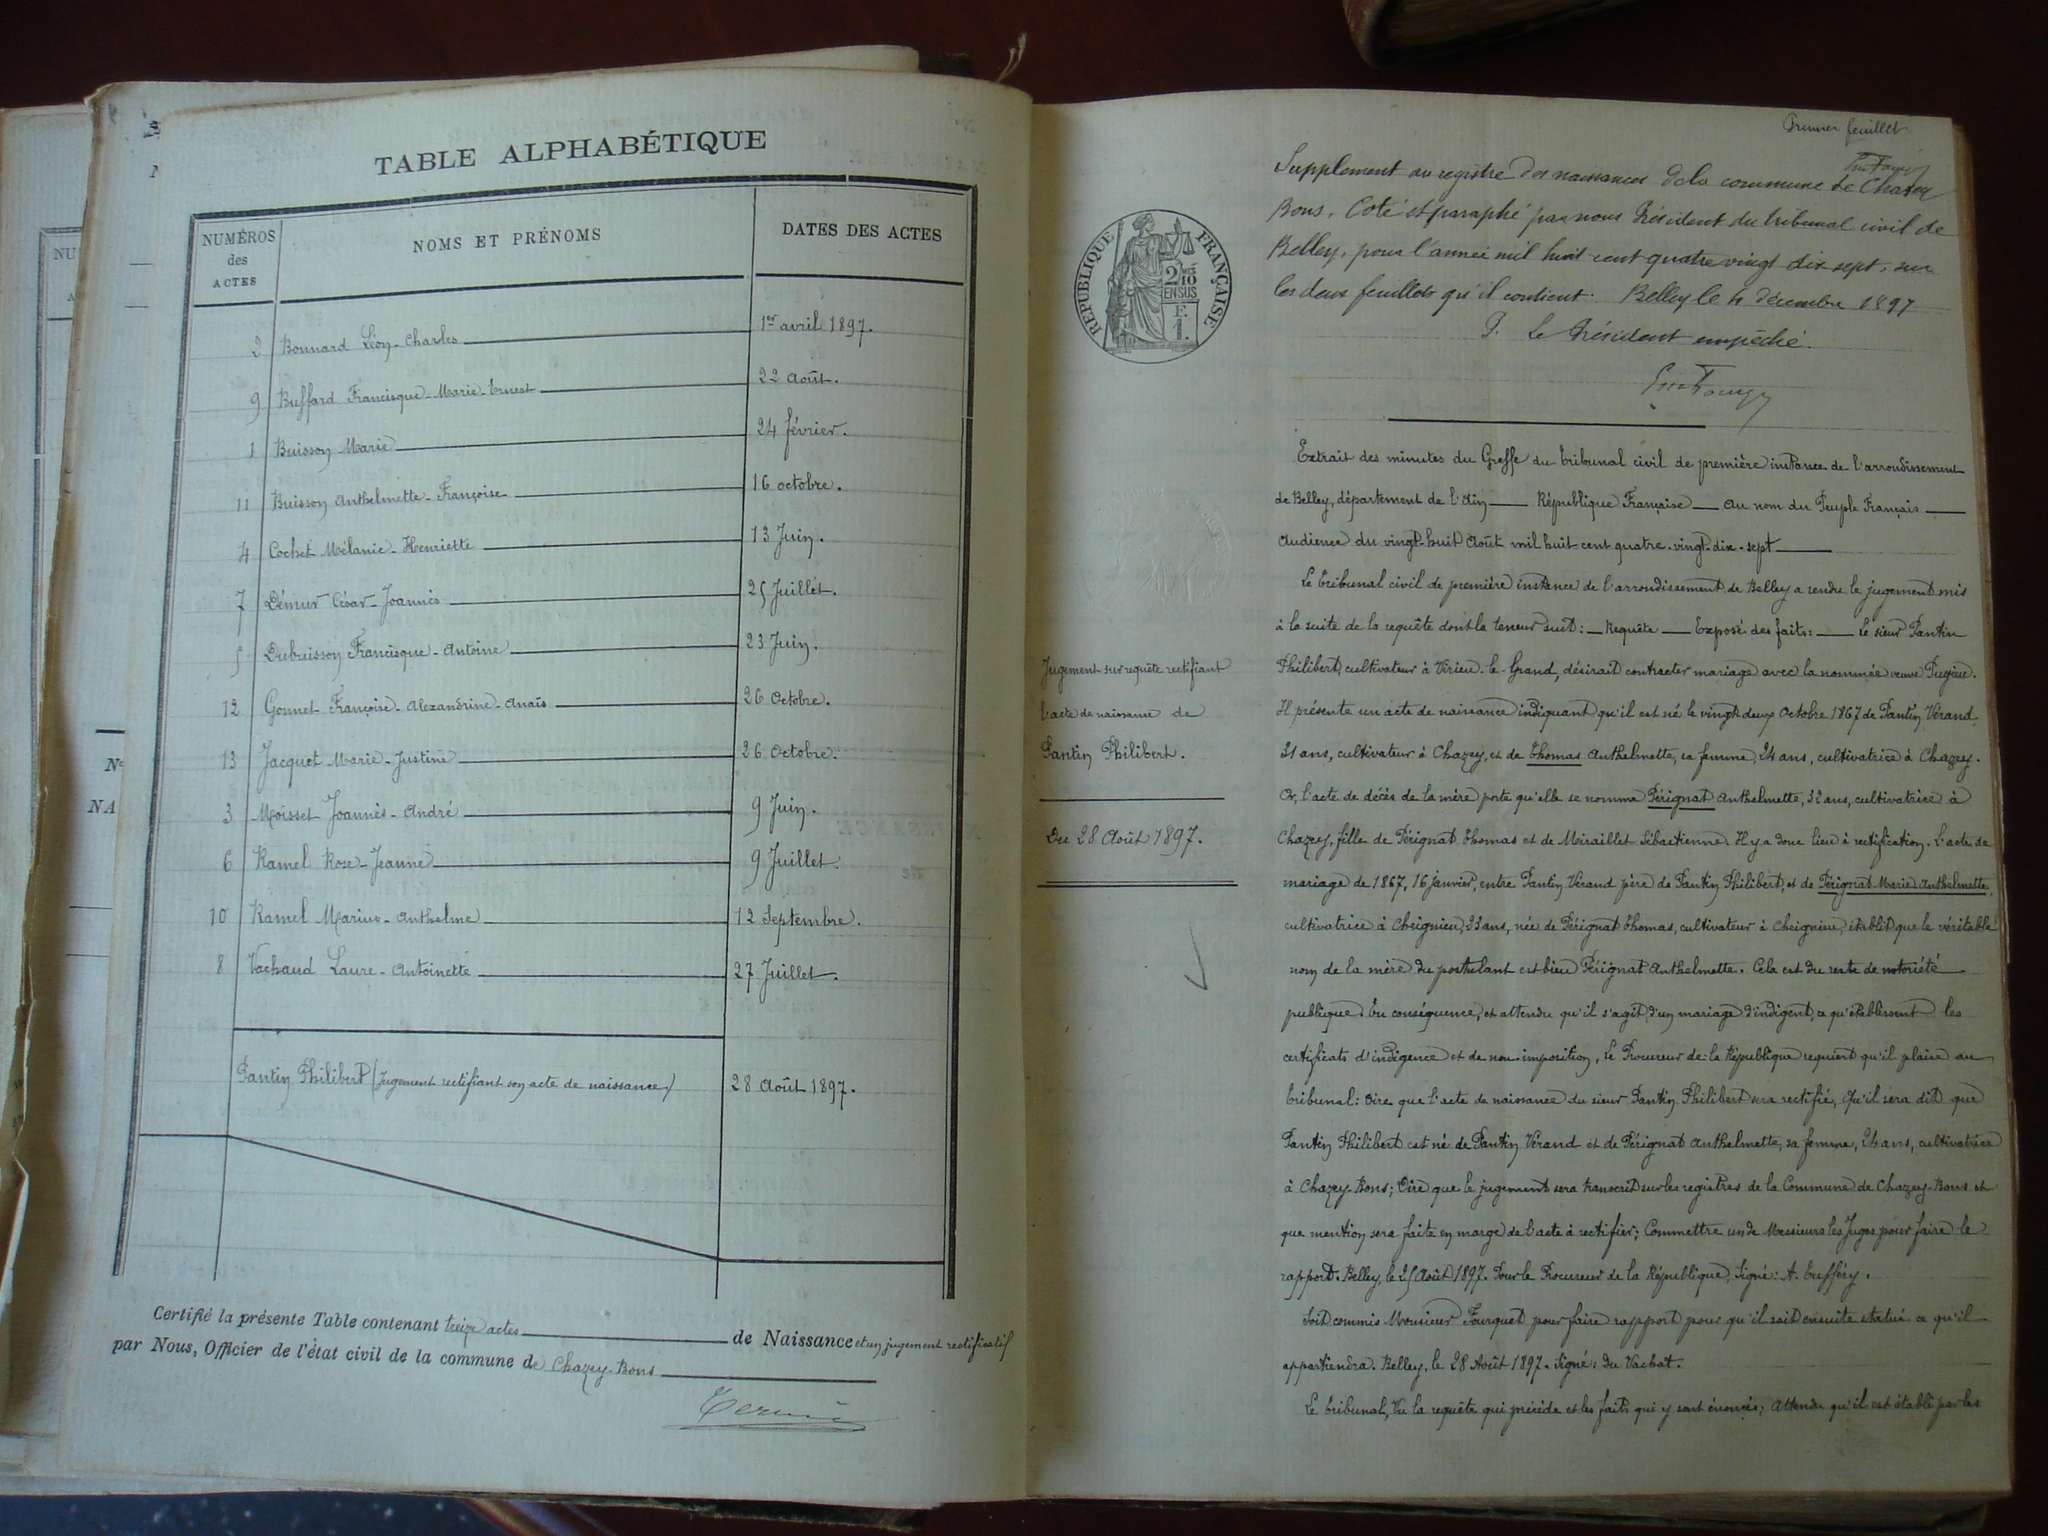 TABLE ALPHABÉTIQUE
NUMÉROS des ACTES NOMS ET PRÉNOMS DATES DES ACTES
2 Bonnard Léon-Charles 1er avril 1897.
9 Buffard Francisque-Marie-Ernest 22 Août.
1 Buisson Marie 24 février.
11 Buisson Anthelmette-Françoise 16 octobre.
4 Cochet Mélanie-Henriette 13 Juin.
7 Démur César-Joannès 25 Juillet.
5 Dubuisson Francisque-Antoine 23 Juin.
12 Gonnet Françoise-Alexandrine-Anaïs 26 Octobre.
13 Jacquet Marie-Justine 26 Octobre.
3 Moisset Joannès-André 9 Juin.
6 Ramel Rose-Jeanne 9 Juillet.
10 Ramel Marius-Anthelme 12 Septembre.
8 Vachaud Laure-Antoinette 27 Juillet.
Pantin Philibert (Jugement rectifiant son acte de naissance) 28 Août 1897.
Certifié la présente Table contenant treize actes de Naissance et un jugement rectificatif
par Nous, Officier de l'état civil de la commune de Chazey-Bons
Premier feuillet
Supplement au registre des naissances de la commune de Chazey
Bons. Coté et paraphé par nous Président du tribunal civil de
Belley, pour l'année mil huit cent quatre vingt dix sept, sur
les deux feuillets qu'il contient. Belley le 4 décembre 1897
P. Le Président empêché.
RÉPUBLIQUE FRANÇAISE
2/10 EN SUS
F. 1.
Extrait des minutes du Greffe du tribunal civil de première instance de l'arrondissement
de Belley, département de l'Ain — République Française — Au nom du Peuple Français —
Audience du vingt-huit Août mil huit cent quatre-vingt-dix-sept —
Le tribunal civil de première instance de l'arrondissement de Belley a rendu le jugement mis
à la suite de la requête dont la teneur suit: — Requête — Exposé des faits: — Le sieur Pantin
Jugement sur requête rectifiant
l'acte de naissance de
Pantin Philibert.
Du 28 Août 1897.
Philibert, cultivateur à Virieu-le-Grand, désirait contracter mariage avec la nommée veuve Pugieu.
Il présente un acte de naissance indiquant qu'il est né le vingt-deux Octobre 1867 de Pantin Vérand,
31 ans, cultivateur à Chazey, et de Thomas Anthelmette, sa femme, 24 ans, cultivatrice à Chazey.
Or, l'acte de décès de la mère porte qu'elle se nomme Pérignat Anthelmette, 32 ans, cultivatrice à
Chazey, fille de Pérignat Thomas et de Miraillet Sébastienne. Il y a donc lieu à rectification. L'acte de
mariage de 1867, 16 janvier, entre Pantin Vérand père de Pantin Philibert, et de Pérignat Marie Anthelmette,
cultivatrice à Cheignieu, 23 ans, née de Pérignat Thomas, cultivateur à Cheignieu, établit que le véritable
nom de la mère du postulant est bien Pérignat Anthelmette. Cela est du reste de notoriété
publique. En conséquence, et attendu qu'il s'agit d'un mariage d'indigent, ce qu'établissent les
certificats d'indigence et de non-imposition, Le Procureur de la République requiert qu'il plaise au
tribunal: Dire que l'acte de naissance du sieur Pantin Philibert sera rectifié, Qu'il sera dit que
Pantin Philibert est né de Pantin Vérand et de Pérignat Anthelmette, sa femme, 24 ans, cultivatrice
à Chazey-Bons; Dire que le jugement sera transcrit sur les registres de la Commune de Chazey-Bons et
que mention sera faite en marge de l'acte à rectifier; Commettre un de Messieurs les Juges pour faire le
rapport. Belley, le 25 Août 1897. Pour le Procureur de la République, Signé: A. Trufféry.
Soit commis Monsieur Fourquet pour faire rapport pour qu'il soit ensuite statué ce qu'il
appartiendra. Belley, le 28 Août 1897. Signé: du Vachat.
Le tribunal, Vu la requête qui précède et les faits qui y sont énoncés; Attendu qu'il est établi par les